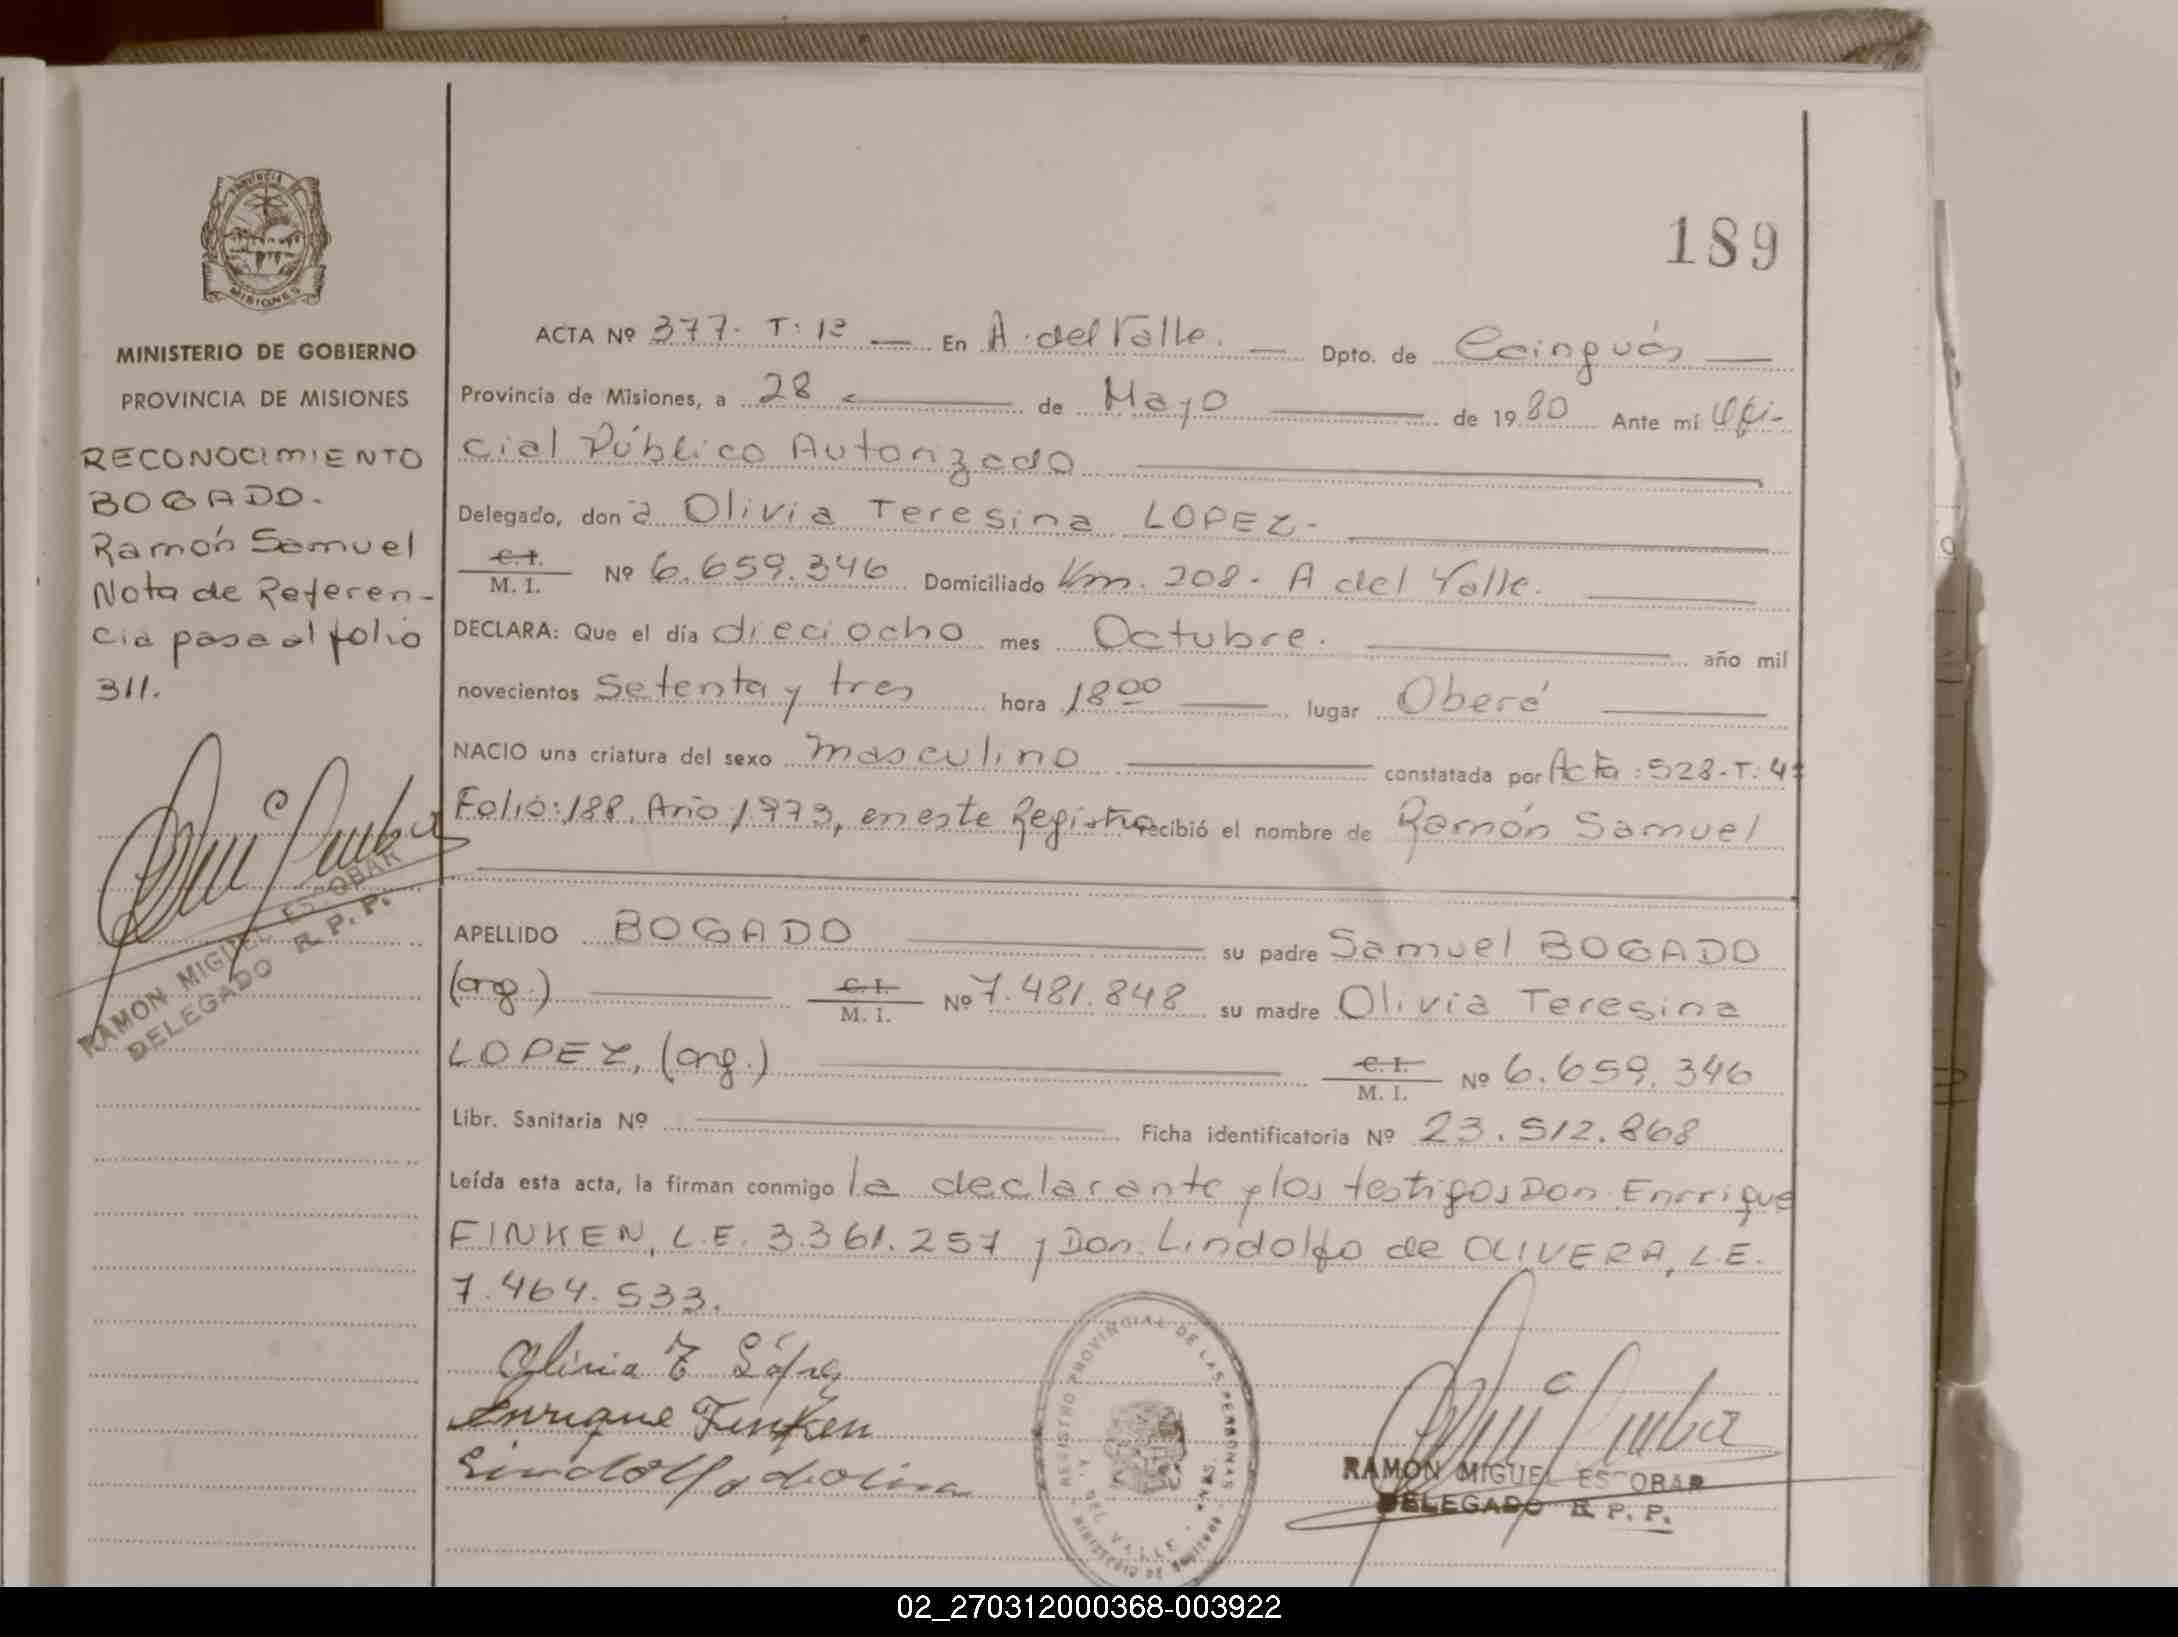 189
PROVINCIA DE
MISIONES
MINISTERIO DE GOBIERNO
PROVINCIA DE MISIONES
RECONOCIMIENTO
BOGADO.
Ramón Samuel
Nota de Referen-
cia pasa al folio
311.
RAMON MIGUEL ESCOBAR
DELEGADO R. P. P.
ACTA Nº 377. T: 1º — En A. del Valle. — Dpto. de Cainguás —
Provincia de Misiones, a 28 — de Mayo — de 1980 Ante mí Ofi-
cial Público Autorizado
Delegado, don a Olivia Teresina LOPEZ.
C. I.
M. I. Nº 6.659.346 Domiciliado Km. 208. A del Valle.
DECLARA: Que el día dieciocho mes Octubre. año mil
novecientos Setenta y tres hora 18 00 — lugar Oberá
NACIO una criatura del sexo masculino — constatada por Acta: 528-T: 4º
Folio: 188, Año 1973, en este Registro recibió el nombre de Ramón Samuel
APELLIDO BOGADO — su padre Samuel BOGADO
(arg.) — C. I.
M. I. Nº 7.481.848 su madre Olivia Teresina
LOPEZ, (arg.) — C. I.
M. I. Nº 6.659.346
Libr. Sanitaria Nº — Ficha identificatoria Nº 23.512.868
Leída esta acta, la firman conmigo la declarante y los testigos Don Enrrique
FINKEN, L.E. 3.361.257 y Don Lindolfo de OLIVERA, L.E.
7.464.533.
Olivia T López
Enrique Finken
REGISTRO PROVINCIAL DE LAS PERSONAS
A. DEL VALLE
MINISTERIO DE GOBIERNO
RAMON MIGUEL ESCOBAR
DELEGADO R. P. P.
02_270312000368-003922